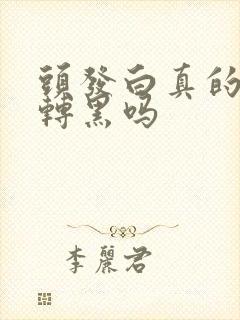 頭發白真的
轉黑吗
李麗君